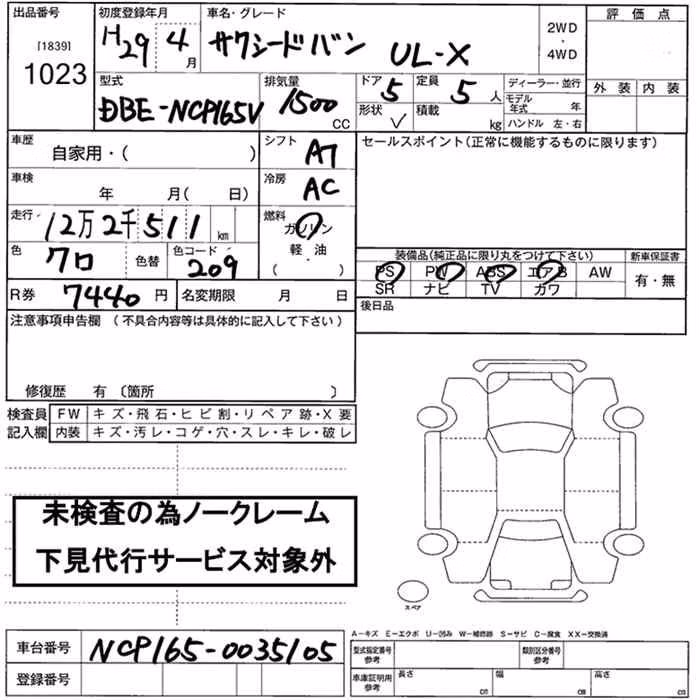 出品番号 初度登録年月 車名・グレード 評価点
[1839] 1023 H29 4月 サクシードバン UL-X 2WD・4WD 外装 内装
型式 DBE-NCP165V 排気量 1500 CC ドア 5 定員 5人 ディーラー・並行
形状 V 積載 kg モデル年式 年 ハンドル 左・右
車歴 自家用・( ) シフト AT セールスポイント(正常に機能するものに限ります)
車検 年 月( 日) 冷房 AC
走行 12万2千511km 燃料 ガソリン 軽・油 ( )
色 クロ 色替 色コード 209 装備品(純正品に限り丸をつけて下さい) 新車保証書
PS PW ABS エアB AW 有・無
SR ナビ TV カワ
R券 7440円 名変期限 月 日 後日品
注意事項申告欄 (不具合内容等は具体的に記入して下さい)
修復歴 有 〔箇所 〕
検査員 FW キズ・飛石・ヒビ割・リペア跡・X要
記入欄 内装 キズ・汚レ・コゲ・穴・スレ・キレ・破レ
未検査の為ノークレーム
下見代行サービス対象外
スペア
A-キズ E-エクボ U-凹み W-補修跡 S-サビ C-腐食 XX-交換済
車台番号 NCP165-0035105 型式指定番号 参考 類別区分番号 参考
登録番号 車庫証明用 参考 長さ cm 幅 cm 高さ cm